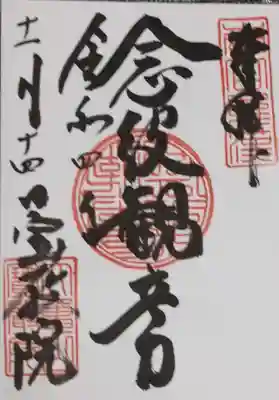 奉拝
念彼観音力
令和四年
十一月十四日
宝厳院